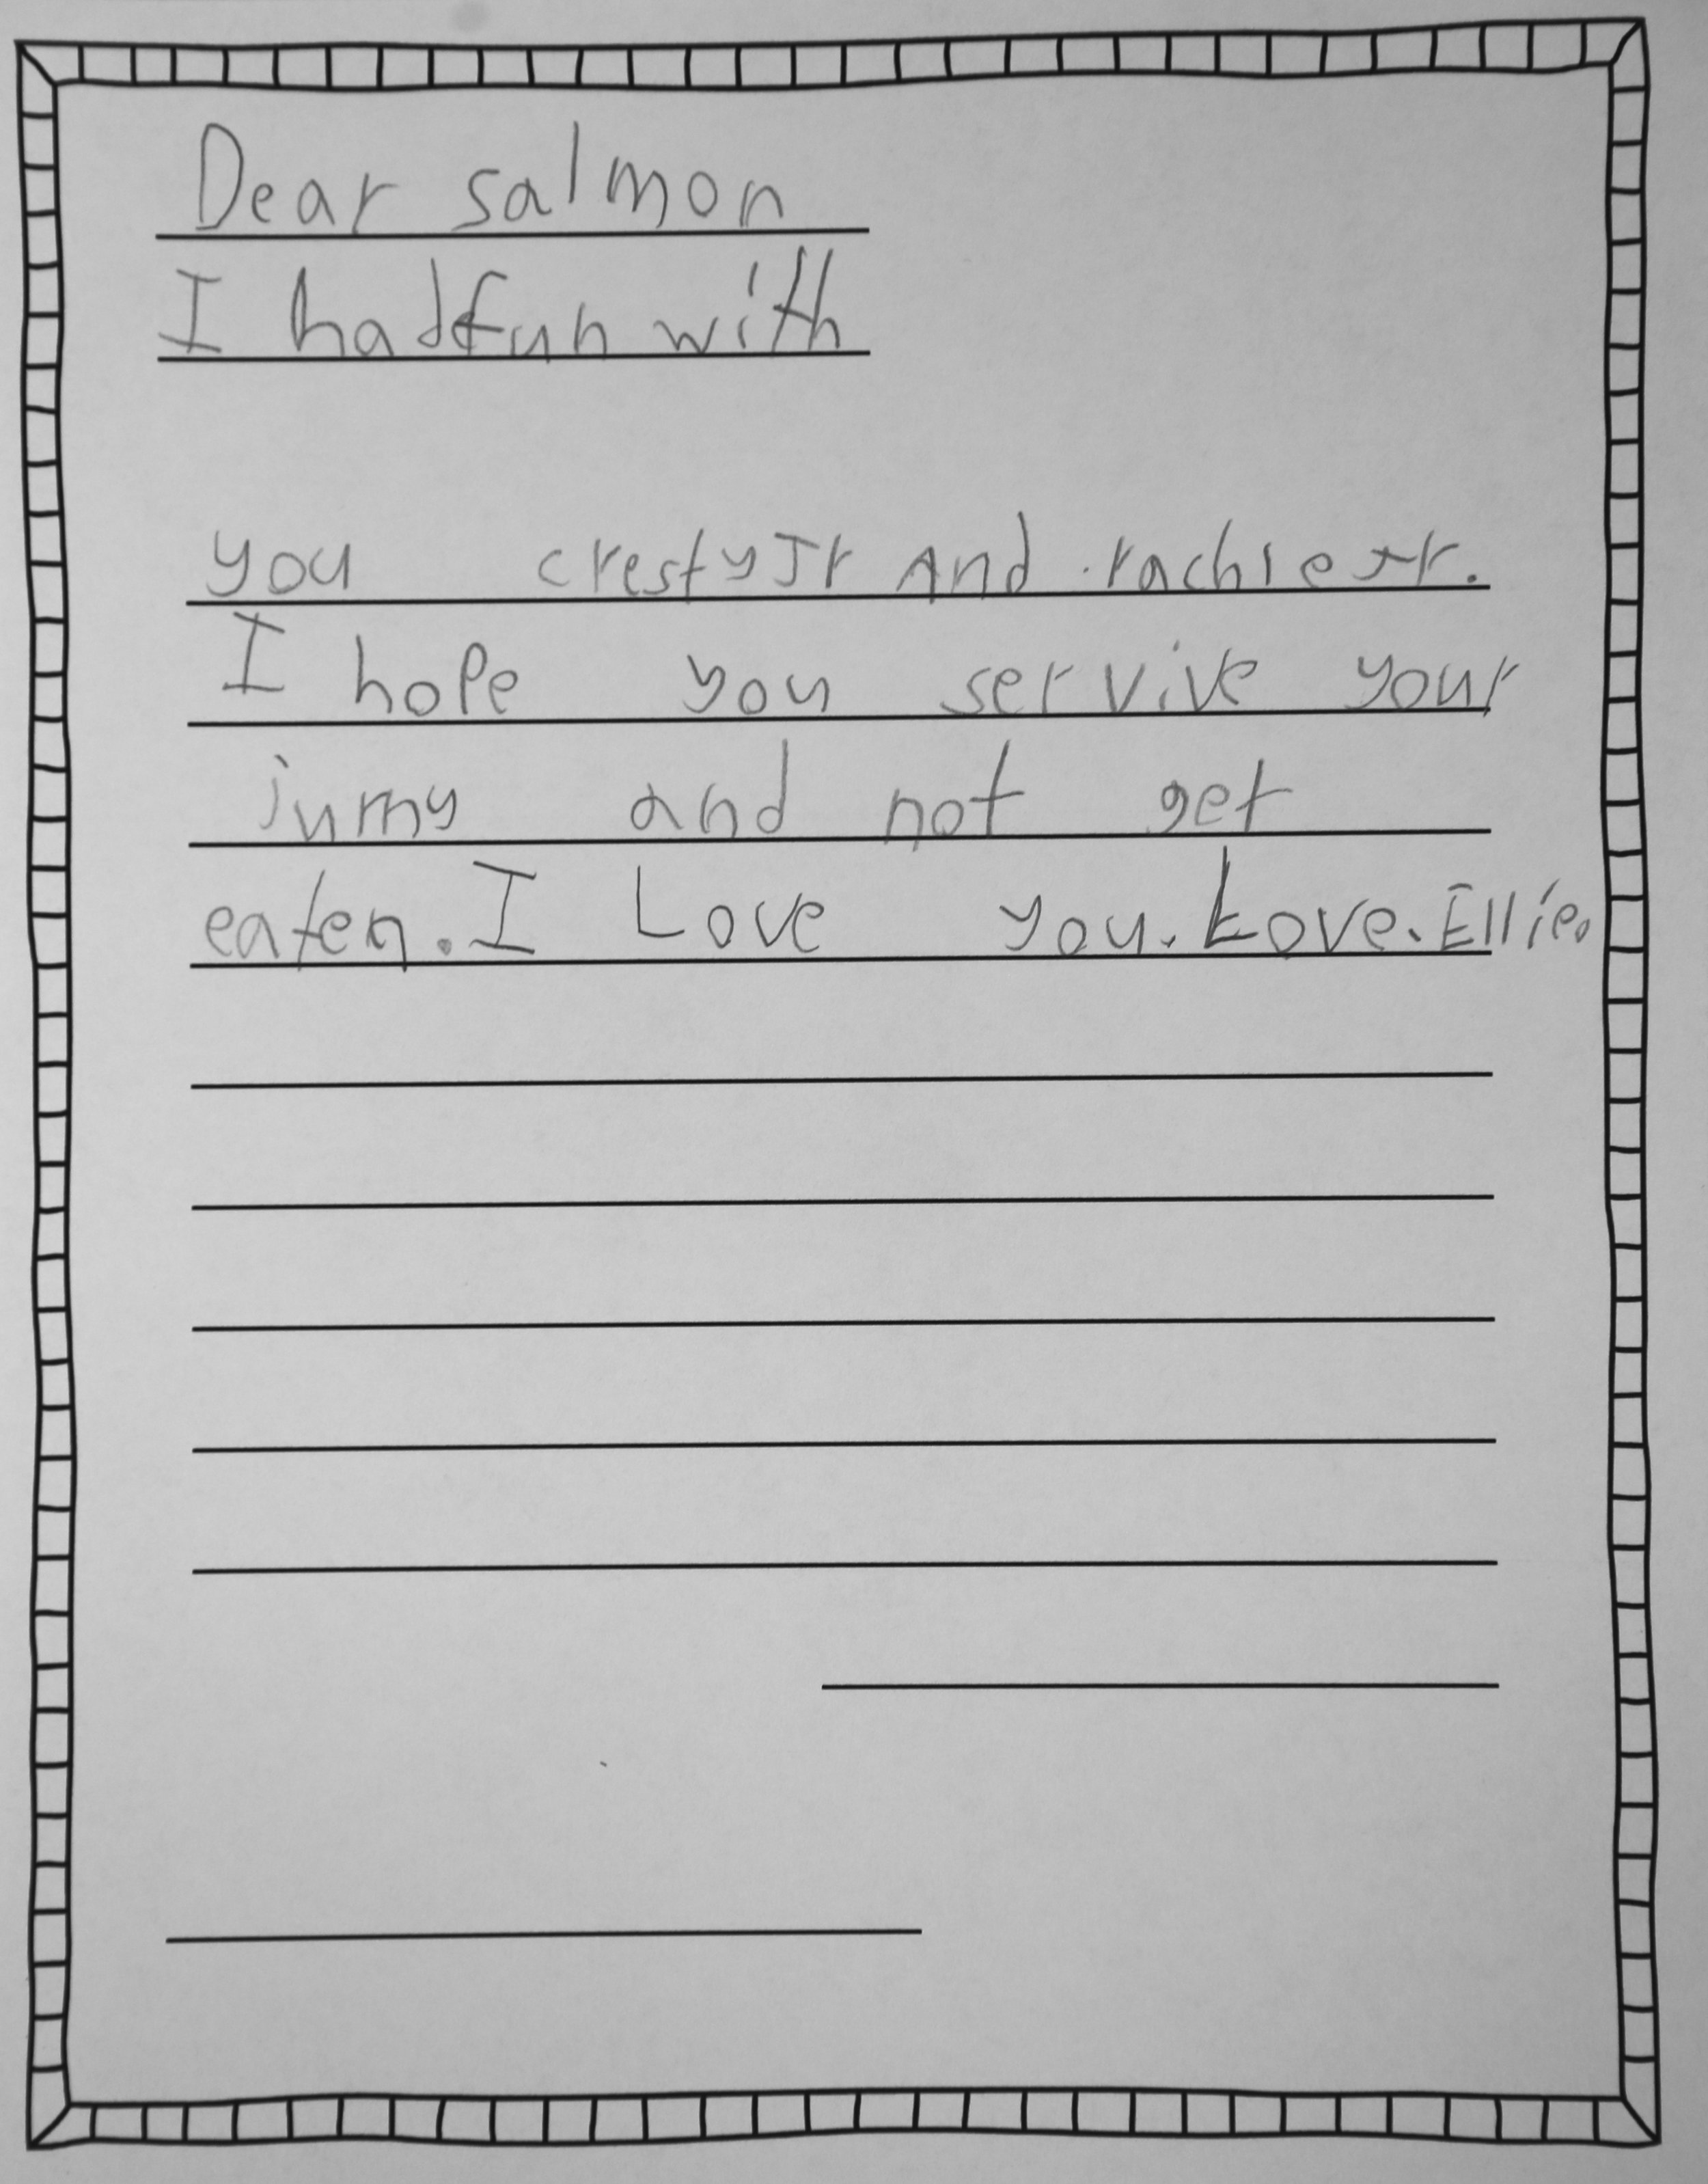 Dear salmon
I had fun with
you crestyJr And rachieJr.
I hope you servive your
jurny and not get
eaten. I Love you. Love. Ellie.